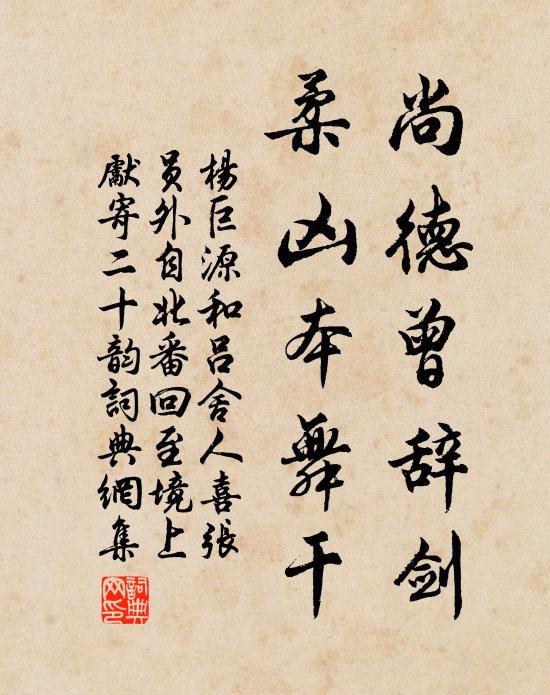 尚德曾辞剑
柔凶本舞干
楊巨源和吕舍人喜張
员外自北番回至境上
獻寄二十韵詞典網集